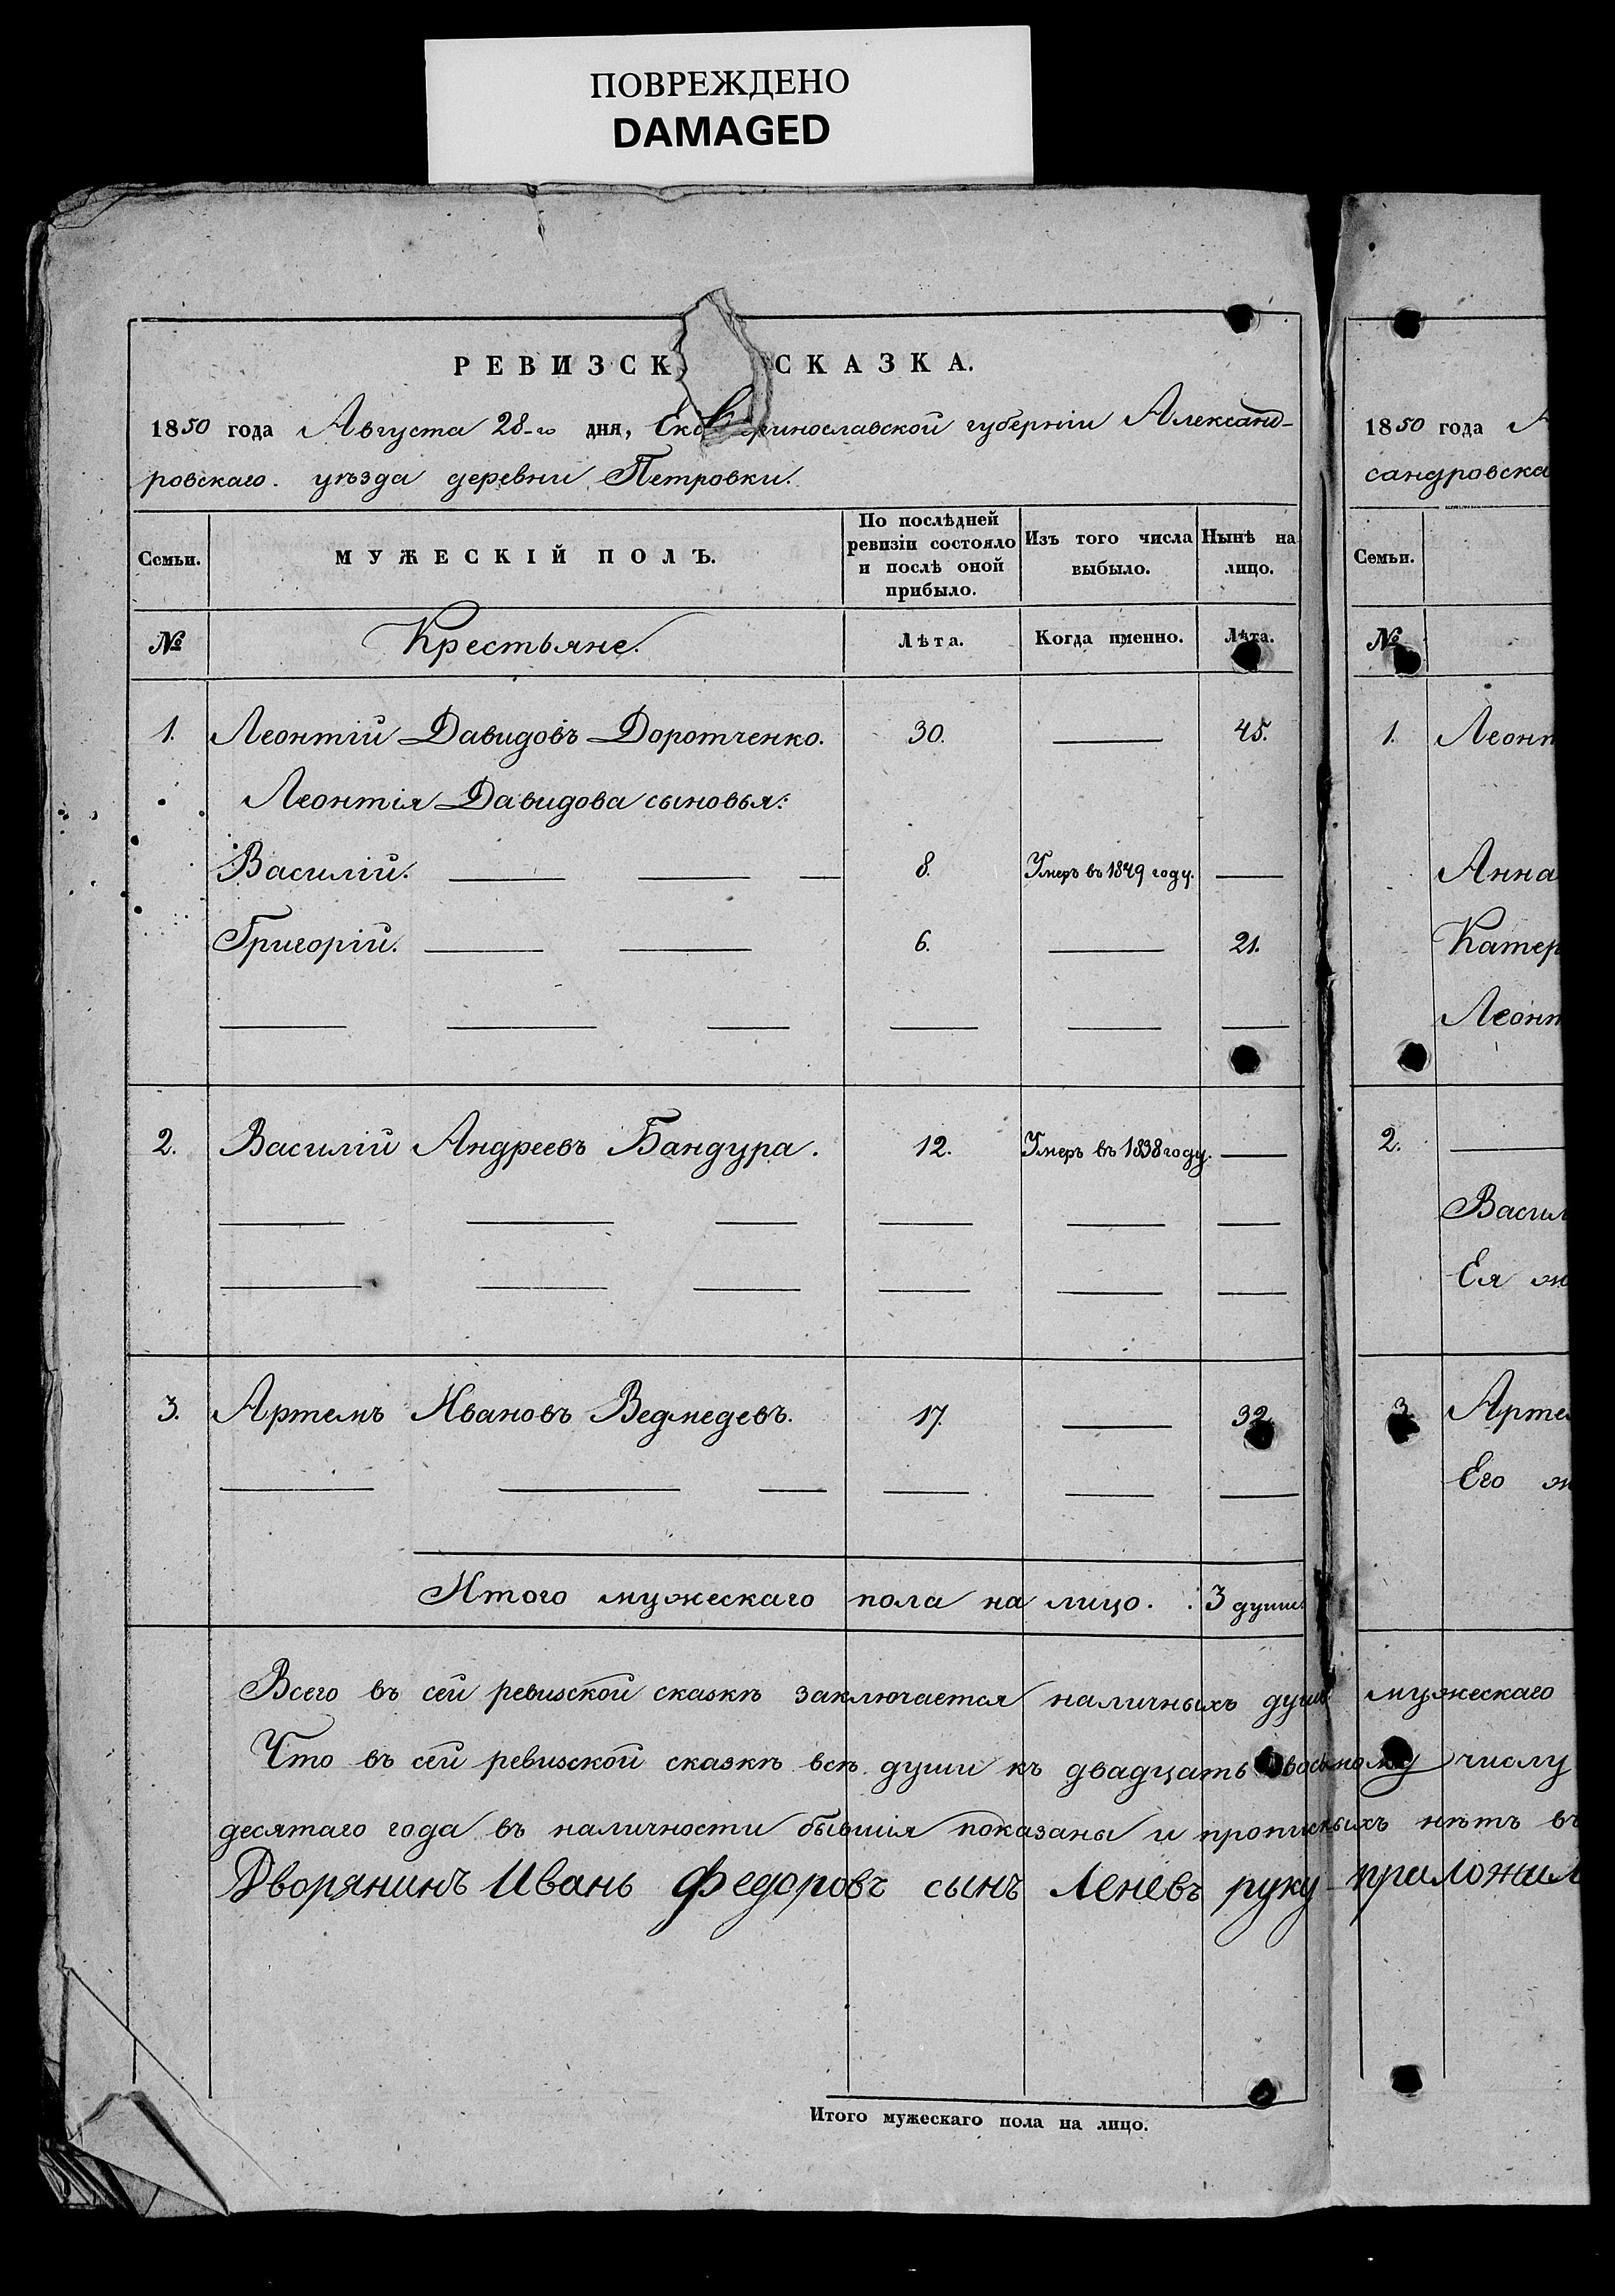 ПОВРЕЖДЕНО
DAMAGED
РЕВИЗСК СКАЗКА.
1850 года Августа 28-го дня, Екатеринославской губерніи Александ-
ровскаго уѣзда деревни Петровки.
Семьи.
МУЖЕСКІЙ ПОЛЪ.
По послѣдней ревизіи состояло и послѣ оной прибыло.
Изъ того числа выбыло.
Нынѣ на лицо.
№ Крестьяне. Лѣта. Когда именно. Лѣта.
1. Леонтій Давидовъ Доротченко. 30. — 45.
Леонтія Давидова сыновья:
Василій. — — — 8. Умеръ въ 1849 году. —
Григорій. — — 6. — 21.
2. Василій Андреевъ Бандура. 12. Умеръ въ 1838 году. —
3. Артемъ Ивановъ Ведмедевъ. 17. — 32.
Итого мужескаго пола на лицо. . 3 души.
Всего въ сей ревизской сказкѣ заключается наличныхъ душъ мужескаго
Что въ сей ревизской сказкѣ всѣ души къ двадцать восьмому числу
десятаго года въ наличности бывшія показаны и прописныхъ нѣтъ въ
Дворянинъ Иванъ Федоровъ сынъ Леневъ руку приложил
Итого мужескаго пола на лицо.
1850 года А
сандровска
Семьи.
№
1. Леонт
Анна
Катер
Леонт
2. —
Васил
Ея ж
3. Арте
Его ж